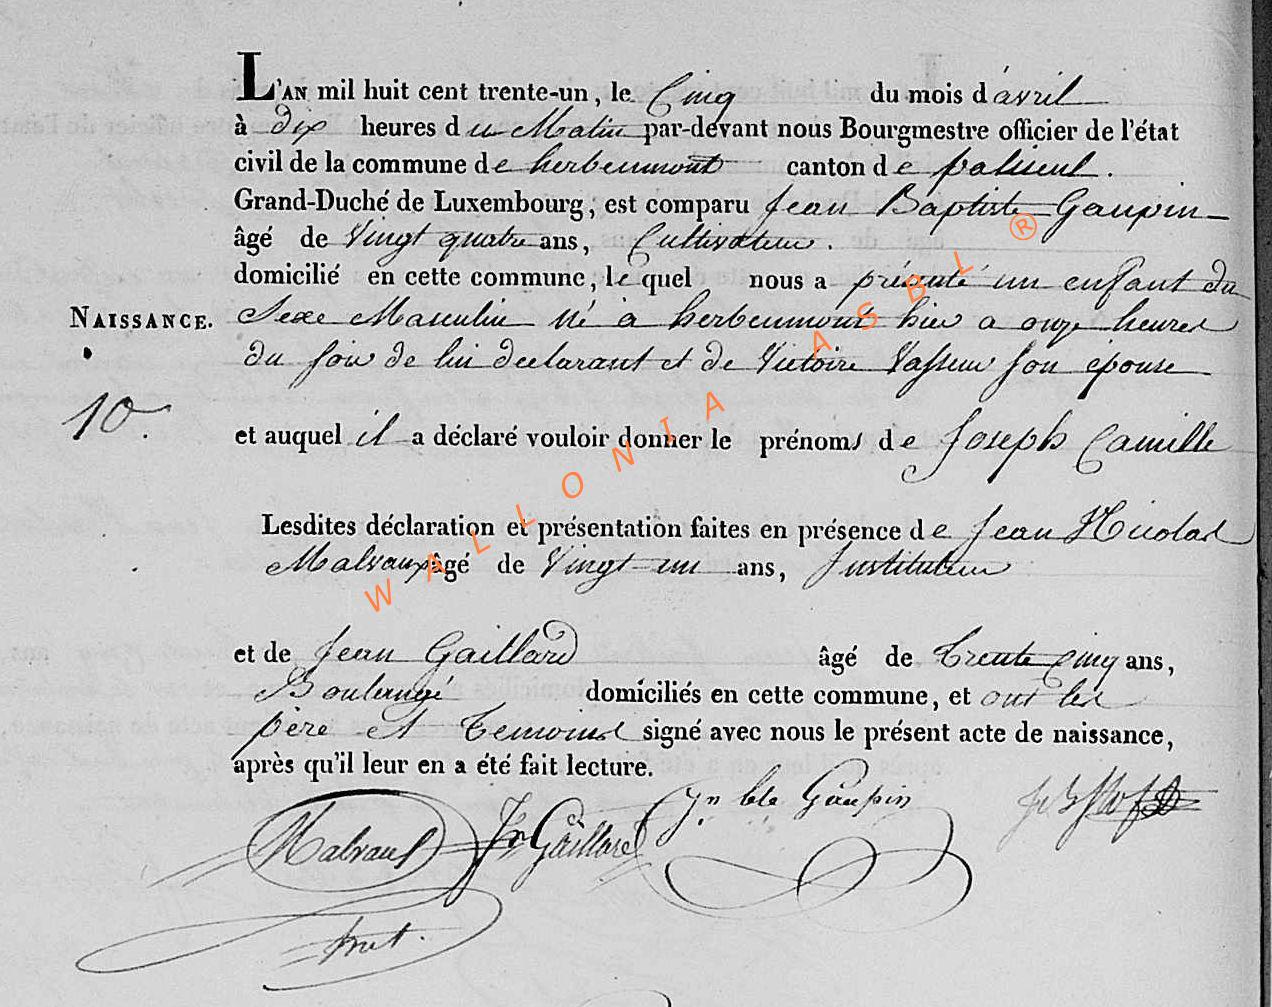 L'AN mil huit cent trente-un, le Cinq du mois d'avril
à dix heures du Matin par-devant nous Bourgmestre officier de l'état
civil de la commune de herbeumont canton de paliseul.
Grand-Duché de Luxembourg, est comparu Jean Baptiste Gaupin
âgé de Vingt quatre ans, Cultivateur.
domicilié en cette commune, lequel nous a présenté un enfant du
NAISSANCE. Sexe Masculin né à herbeumont hier a onze heures
du soir de lui declarant et de Victoire Vasseur son épouse
10. et auquel il a déclaré vouloir donner le prénoms de Joseph Camille
Lesdites déclaration et présentation faites en présence de Jean Nicolas
Malvaux âgé de Vingt un ans, Instituteur
et de Jean Gaillard âgé de Trente cinq ans,
Boulengé domiciliés en cette commune, et ont les
père et Temoins signé avec nous le présent acte de naissance,
après qu'il leur en a été fait lecture.
Jn bte Gaupin
Malvaux Jn Gaillard
WALLONIA ASBL ®